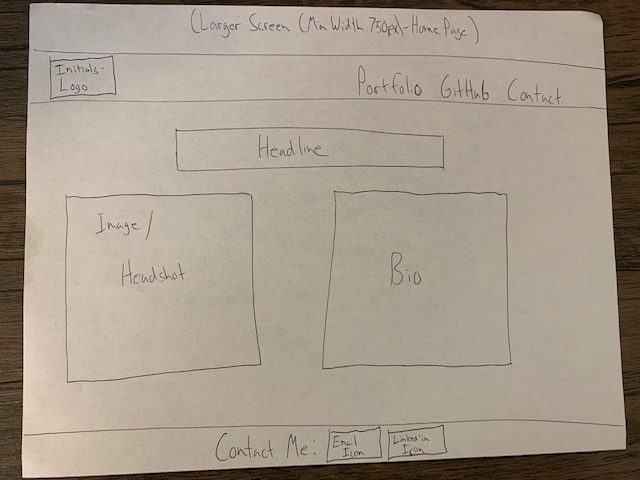 (Larger Screen (Min Width 750px)-Home Page)
Initials-
Logo
Portfolio GitHub Contact
Headline
Image/
Headshot
Bio
Contact Me:
Email
Icon
Linked in
Icon